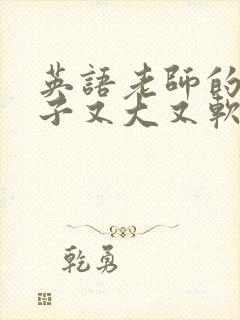 英語老師的
子又大又軟
乾勇